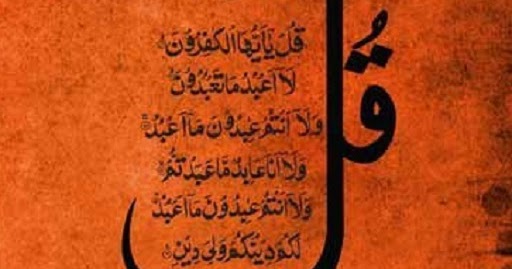 قُل
قُلْ يَا أَيُّهَا الْكَفِرُونَ
لَا أَعْبُدُ مَا تَعْبُدُونَ
وَلَا أَنْتُمْ عٰبِدُونَ مَا أَعْبُدُ
وَلَا أَنَا عَابِدٌ مَّا عَبَدْتُّمْ
وَلَا أَنْتُمْ عٰبِدُونَ مَا أَعْبُدُ
لَكُمْ دِينُكُمْ وَلِيَ دِيْنِ